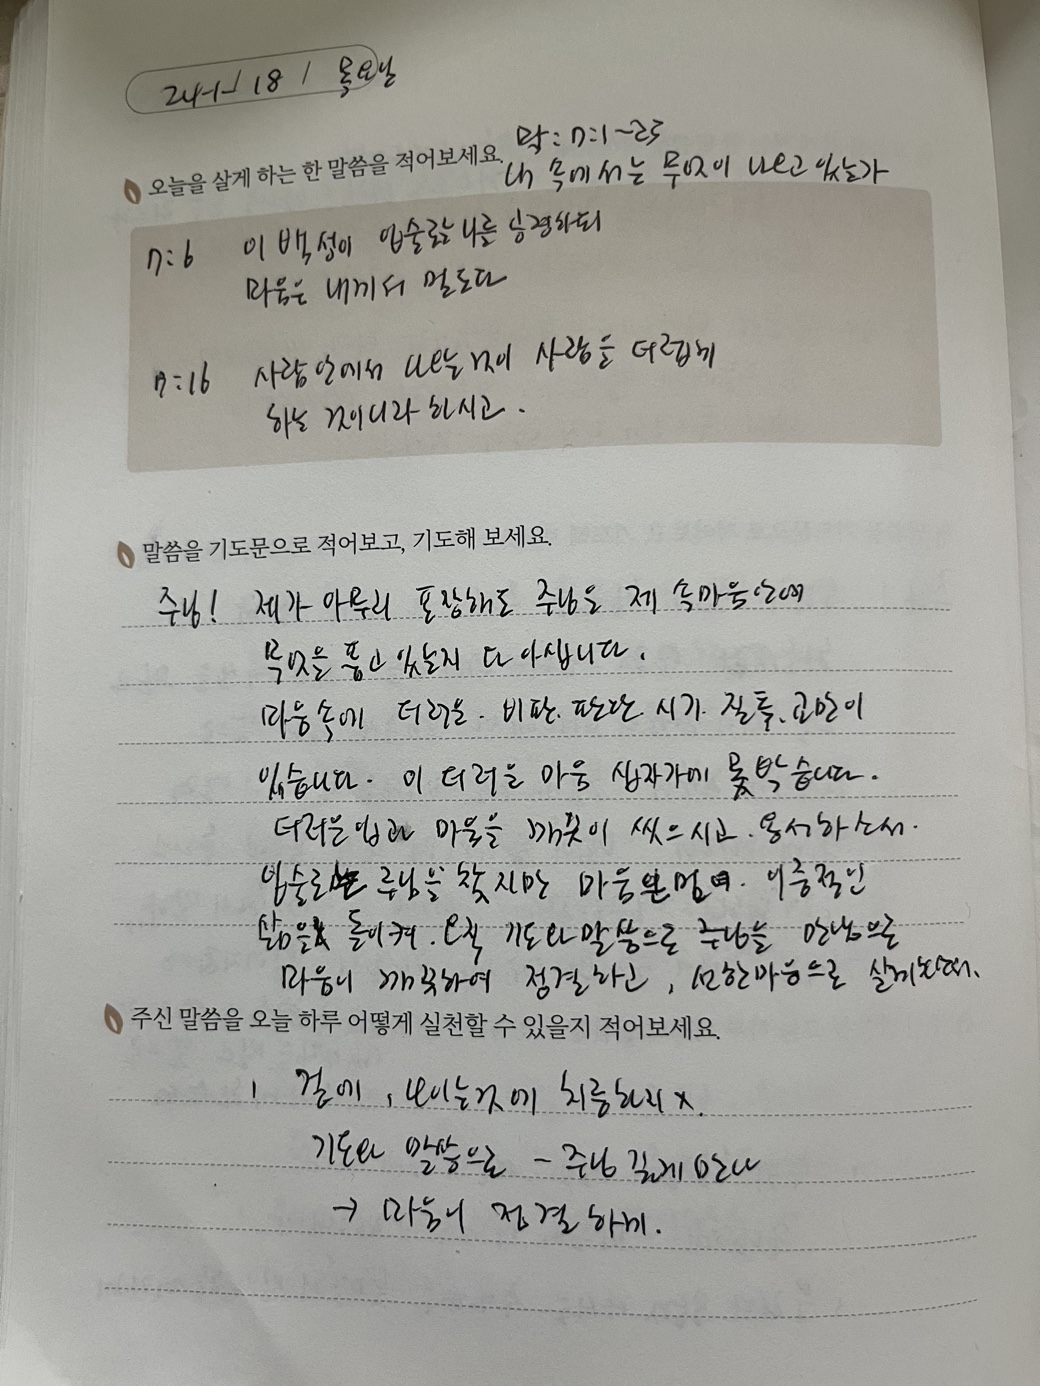 24-1-18 / 목요일
막: 7:1~23
오늘을 살게 하는 한 말씀을 적어보세요.
내 속에서는 무엇이 나오고 있는가
7:6 이 백성이 입술로는 나를 공경하되
마음은 내게서 멀도다
7:16 사람 안에서 나오는 것이 사람을 더럽게
하는 것이니라 하시고.
말씀을 기도문으로 적어보고, 기도해 보세요.
주님! 제가 아무리 포장해도 주님은 제 속마음 안에
무엇을 품고 있는지 다 아십니다.
마음속에 더러운. 비판. 판단. 시기. 질투. 교만이
있습니다. 이 더러운 마음 십자가에 못 박습니다.
더러운 입과 마음을 깨끗이 씻으시고. 용서하소서.
입술로는 주님을 찾지만 마음은 멀며. 이중적인
삶을 돌이켜. 오직 기도와 말씀으로 주님을 만남으로
마음이 깨끗하여 정결하고, 선한마음으로 살게하소서.
주신 말씀을 오늘 하루 어떻게 실천할 수 있을지 적어보세요.
1 겉에, 보이는것에 치중하지 x.
기도와 말씀으로 - 주님 깊게 만나
→ 마음이 정결하게.